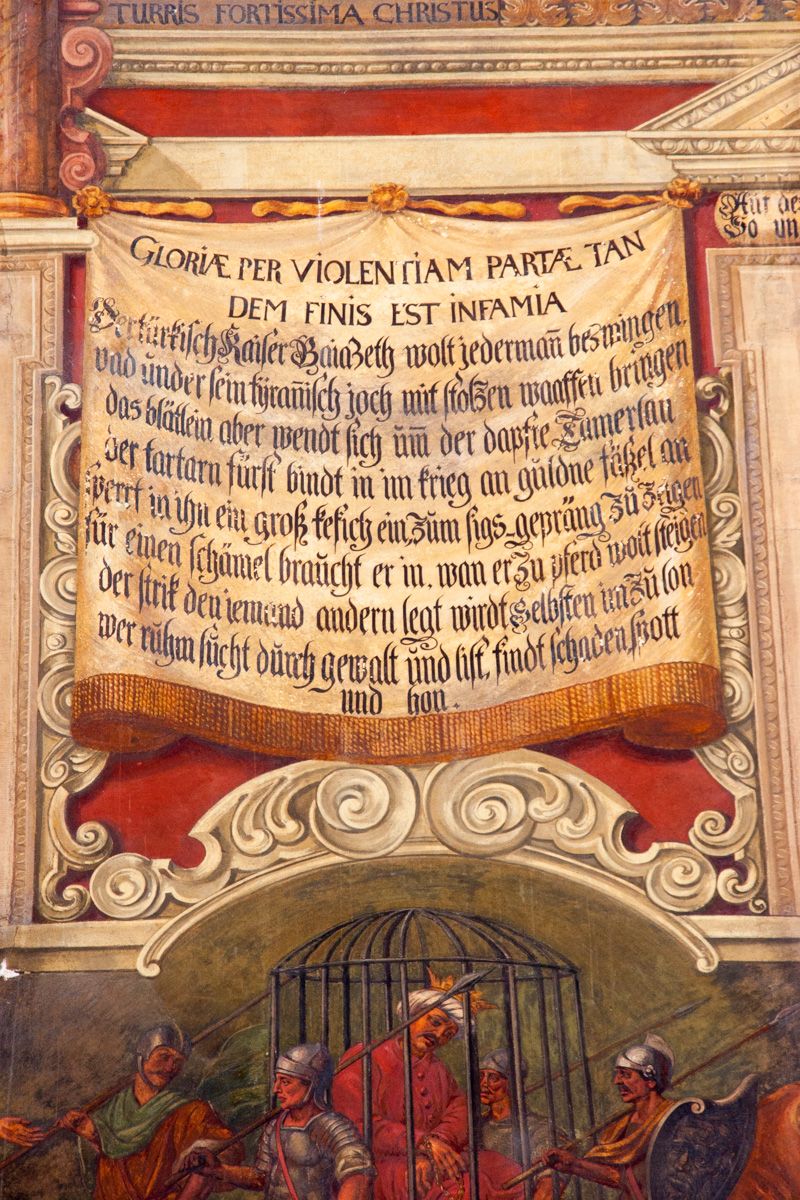 TURRIS FORTISSIMA CHRISTUS
GLORIÆ PER VIOLENTIAM PARTÆ TAN
DEM FINIS EST INFAMIA
Der türkisch Kaiser Baiazeth wolt jedermañ bezwingen.
vnd under sein tÿrañisch joch mit stolzen waaffen bringen
das blätlein aber wendt sich um̃ der dapfre Tamerlan
der tartarn fürst bindt in im krieg an güldne fäßel an
sperrt in ihn ein groß kefich ein, zum sigs-gepräng zů zeigen
für einen schämel braůcht er in. wan er zu pferd wolt steigen
der strik den iemand andern legt wirdt selbsten im zů lon
wer růhm sůcht důrch gewalt ůnd list, findt schaden spott
und hon.
So